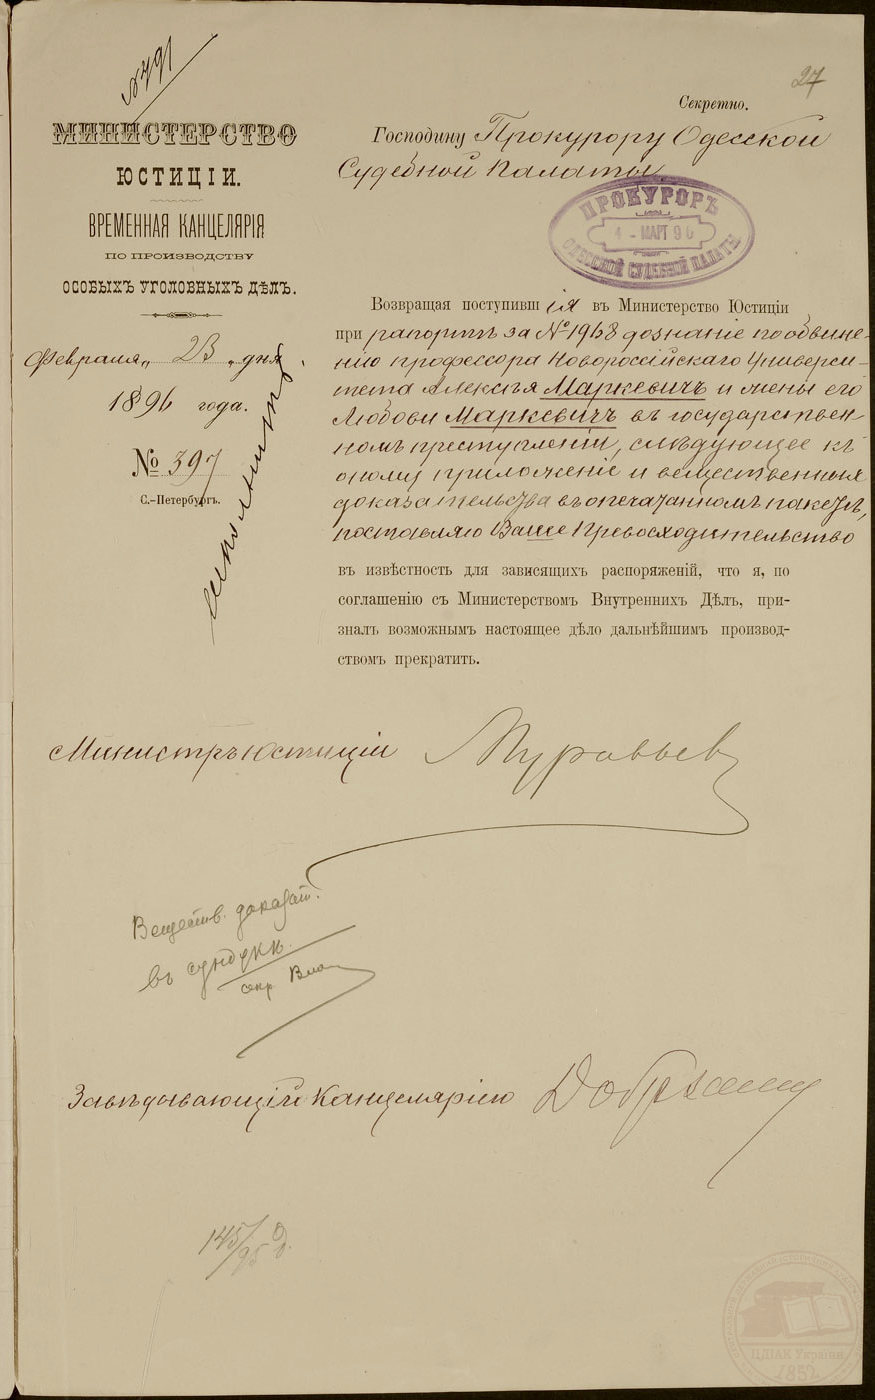 № 491
27
Секретно.
МИНИСТЕРСТВО
ЮСТИЦІИ.
ВРЕМЕННАЯ КАНЦЕЛЯРІЯ
ПО ПРОИЗВОДСТВУ
ОСОБЫХЪ УГОЛОВНЫХЪ ДѢЛЪ.
Февраля „ 23 „ дня
1896 года.
№ 397
С.-Петербургъ.
Господину Прокурору Одесской
Судебной Палаты.
ПРОКУРОРЪ
4 - МАРТ 96
ОДЕССКОЙ СУДЕБНОЙ ПАЛАТЫ
Возвращая поступившія въ Министерство Юстиціи
при рапортѣ за № 1968 дознаніе по обвине-
нію профессора Новороссійскаго Универси-
тета Алексѣя Маркевичъ и жены его
Любови Маркевичъ въ государствен-
номъ преступленіи, слѣдующее къ
оному приложеніе и вещественныя
доказательства въ опечатанномъ пакетѣ,
поставляю Ваше Превосходительство
въ извѣстность для зависящихъ распоряженій, что я, по
соглашенію съ Министерствомъ Внутреннихъ Дѣлъ, при-
зналъ возможнымъ настоящее дѣло дальнѣйшимъ производ-
ствомъ прекратить.
Министръ Юстиціи Муравьев
Веществ. доказат.
въ сундукѣ.
секр.
Завѣдывающій Канцеляріею
145/95
ЦДІАК України
1852